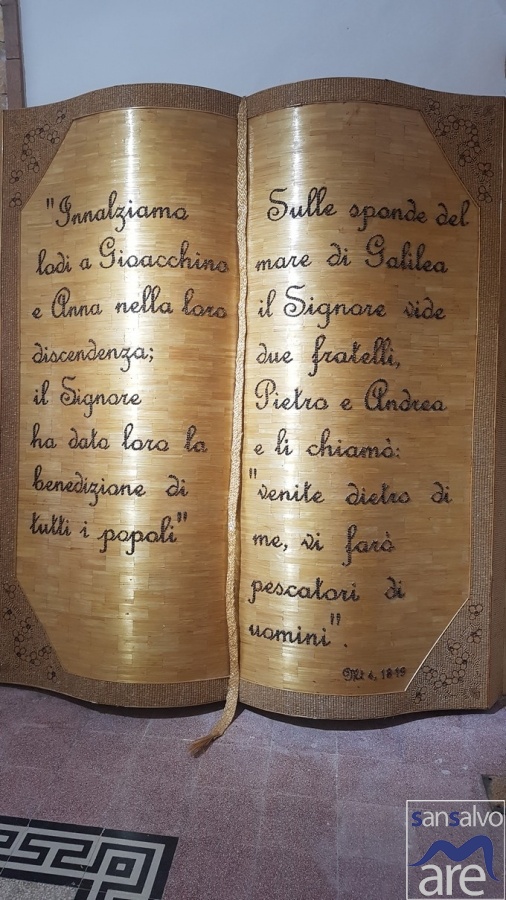 "Innalziamo
lodi a Gioacchino
e Anna nella loro
discendenza;
il Signore
ha dato loro la
benedizione di
tutti i popoli"
Sulle sponde del
mare di Galilea
il Signore vide
due fratelli,
Pietro e Andrea
e li chiamò:
"venite dietro di
me, vi farò
pescatori di
uomini".
Mt 4, 18-19
sansalvo
mare